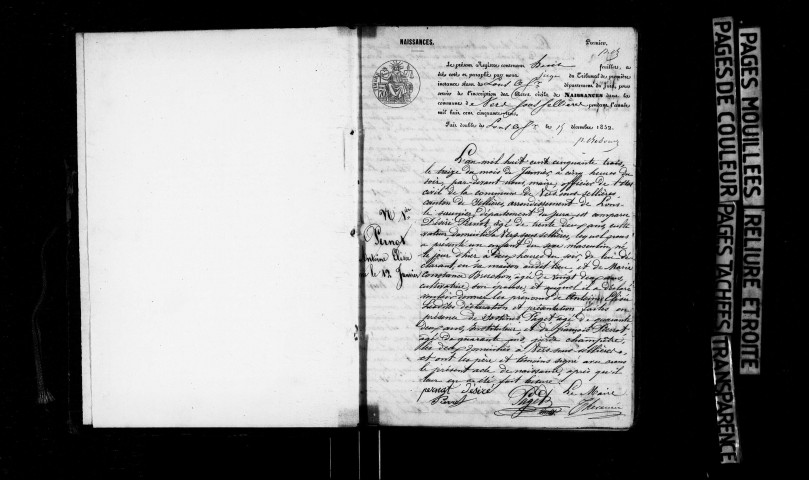 NAISSANCES.
Premier.
Le présent Registre contenant feuillets, a
été coté et paraphé par nous juge du Tribunal de première
instance séant à Lons département du Jura, pour
servir à l'inscription des Actes civils de NAISSANCES dans la
commune de Vers sous Sellières pendant l'année
mil huit cent cinquante-trois.
Fait double à Lons le 15 décembre 1852.
L'an mil huit cent cinquante trois,
le treize du mois de Janvier, à cinq heures du
soir, par devant nous, maire, officier de l'état
civil de la commune de Vers sous Sellières,
canton de Sellières, arrondissement de Lons
le saunier, département du jura, est comparu
Désiré Pernot, âgé de trente deux ans, culti
vateur domicilié à Vers sous sellières, lequel nous
a présenté un enfant du sexe masculin, né
le jour d'hier à heures du soir, de lui dé
clarant, en sa maison et de Marie
Constance âgée de vingt deux ans,
cultivatrice, son épouse, et auquel il a déclaré
vouloir donner les prénoms de Antoine
déclaration et présentation faites en
présence de Paget âgé de quarante
deux ans, instituteur, et de François Pernot
âgé de quarante ans, garde champêtre,
les deux domiciliés à Vers sous sellières,
et ont les père et témoins signé avec nous
le présent acte de naissance, après qu'il
leur en a été fait lecture.
pernot désiré
Paget
Le Maire
N 1er
Pernot
Antoine
né le 12 Janvier
PAGES MOUILLÉES
RELIURE ETROITE
PAGES DE COULEUR
PAGES TACHÉES
TRANSPARENCE